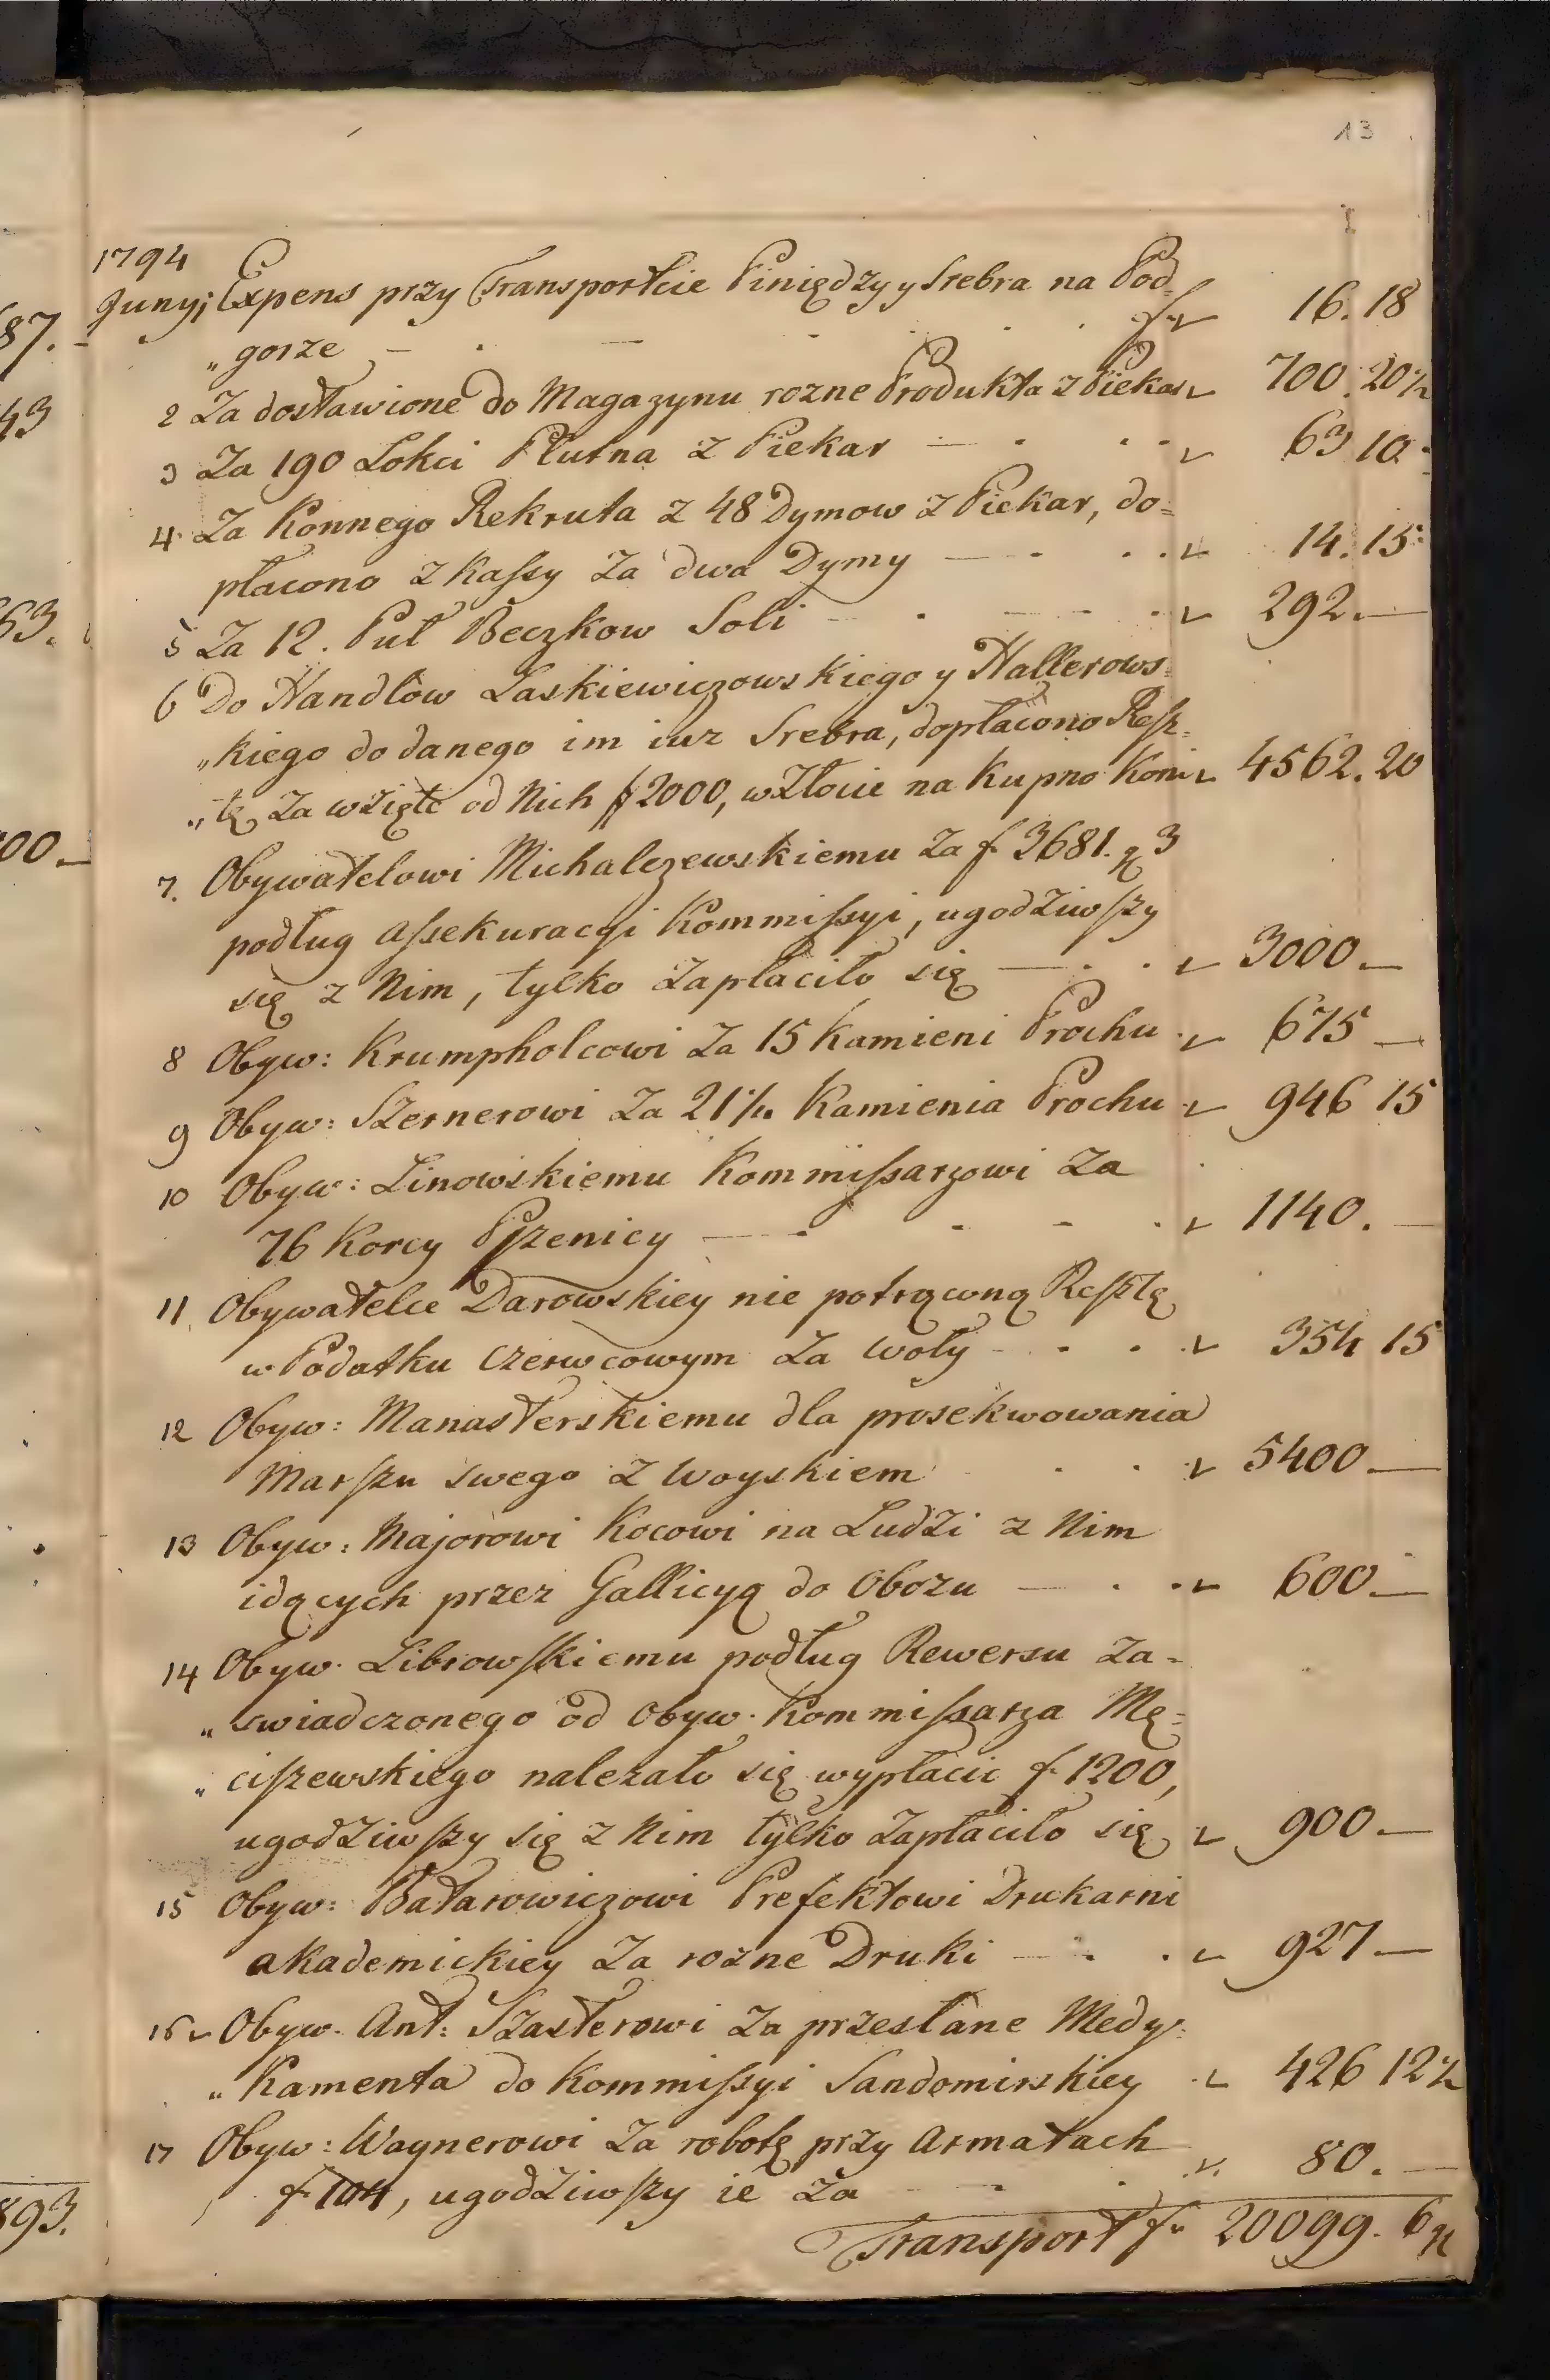 13
1794
Junyi Expens przy Transportcie Piniędzy y Srebra na Pod-
„gorze — f 16. 18
2 Za dostawione do Magazynu rozne Produkta z Piekar 700. 20½
3 Za 190 Lokci Plutna z Piekar — 63 10
4 Za Konnego Rekruta z 48 Dymow z Piekar, do=
płacono z Kassy za dwa Dymy — 14. 15
5 Za 12. Puł Beczkow Soli — 292. —
6 Do Handlow Laskiewiczowskiego y Hallerows=
„kiego do danego im iuz Srebra, dopłacono Resz=
„tę za wzięte od Nich # 2000, w Złocie na Kupno Koni 4562. 20
7. Obywatelowi Michalczewskiemu za f 3681. g 3
podług assekuracyi Kommissyi, ugodziwszy
się z Nim, tylko zapłaciło się — 3000 —
8 Obyw: Krumpholcowi za 15 Kamieni Prochu 675 —
9 Obyw: Szernerowi za 21½ Kamienia Prochu 946 15
10 Obyw: Linowskiemu Kommissarzowi za
76 Korcy Pszenicy — 1140. —
11 Obywatelce Darowskiey nie potrąconą Resztę
w Podatku Czerwcowym za Woły 354 15
12 Obyw: Manasterskiemu dla prosekwowania
Marszu swego z Woyskiem 5400 —
13 Obyw: Majorowi Kocowi na Ludzi z Nim
idących przez Gallicyą do Obozu — 600 —
14 Obyw. Librowskiemu podług Rewersu za-
„swiadczonego od Obyw. Kommissarza Mę=
„ciszewskiego nalezało się wypłacic f 1200,
ugodziwszy się z Nim tylko zapłaciło się 900 —
15 Obyw: Batarowiczowi Prefektowi Drukarni
akademickiey za rozne Druki — 927 —
16 Obyw. Ant: Szasterowi za przesłane Medy=
„kamenta do Kommissyi Sandomirskiey 426 12½
17 Obyw: Waynerowi za robotę przy Armatach
f 104, ugodziwszy ie za 80. —
Transport f 20099. 6